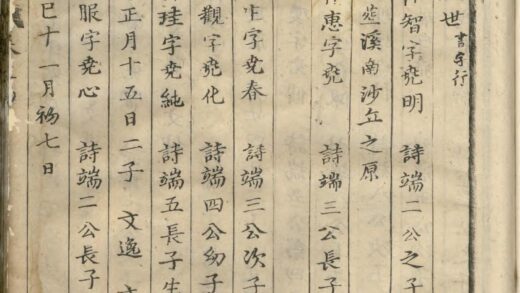 世 書字行
智字堯明 詩端二公之子
溪南沙丘之原
惠字堯 詩端三公長子
字堯春 詩端三公次子
觀字堯化 詩端四公幼子
珪字堯純 詩端五長子生
正月十五日二子 文逸
服字堯心 詩端二公長子
巳十一月初七日